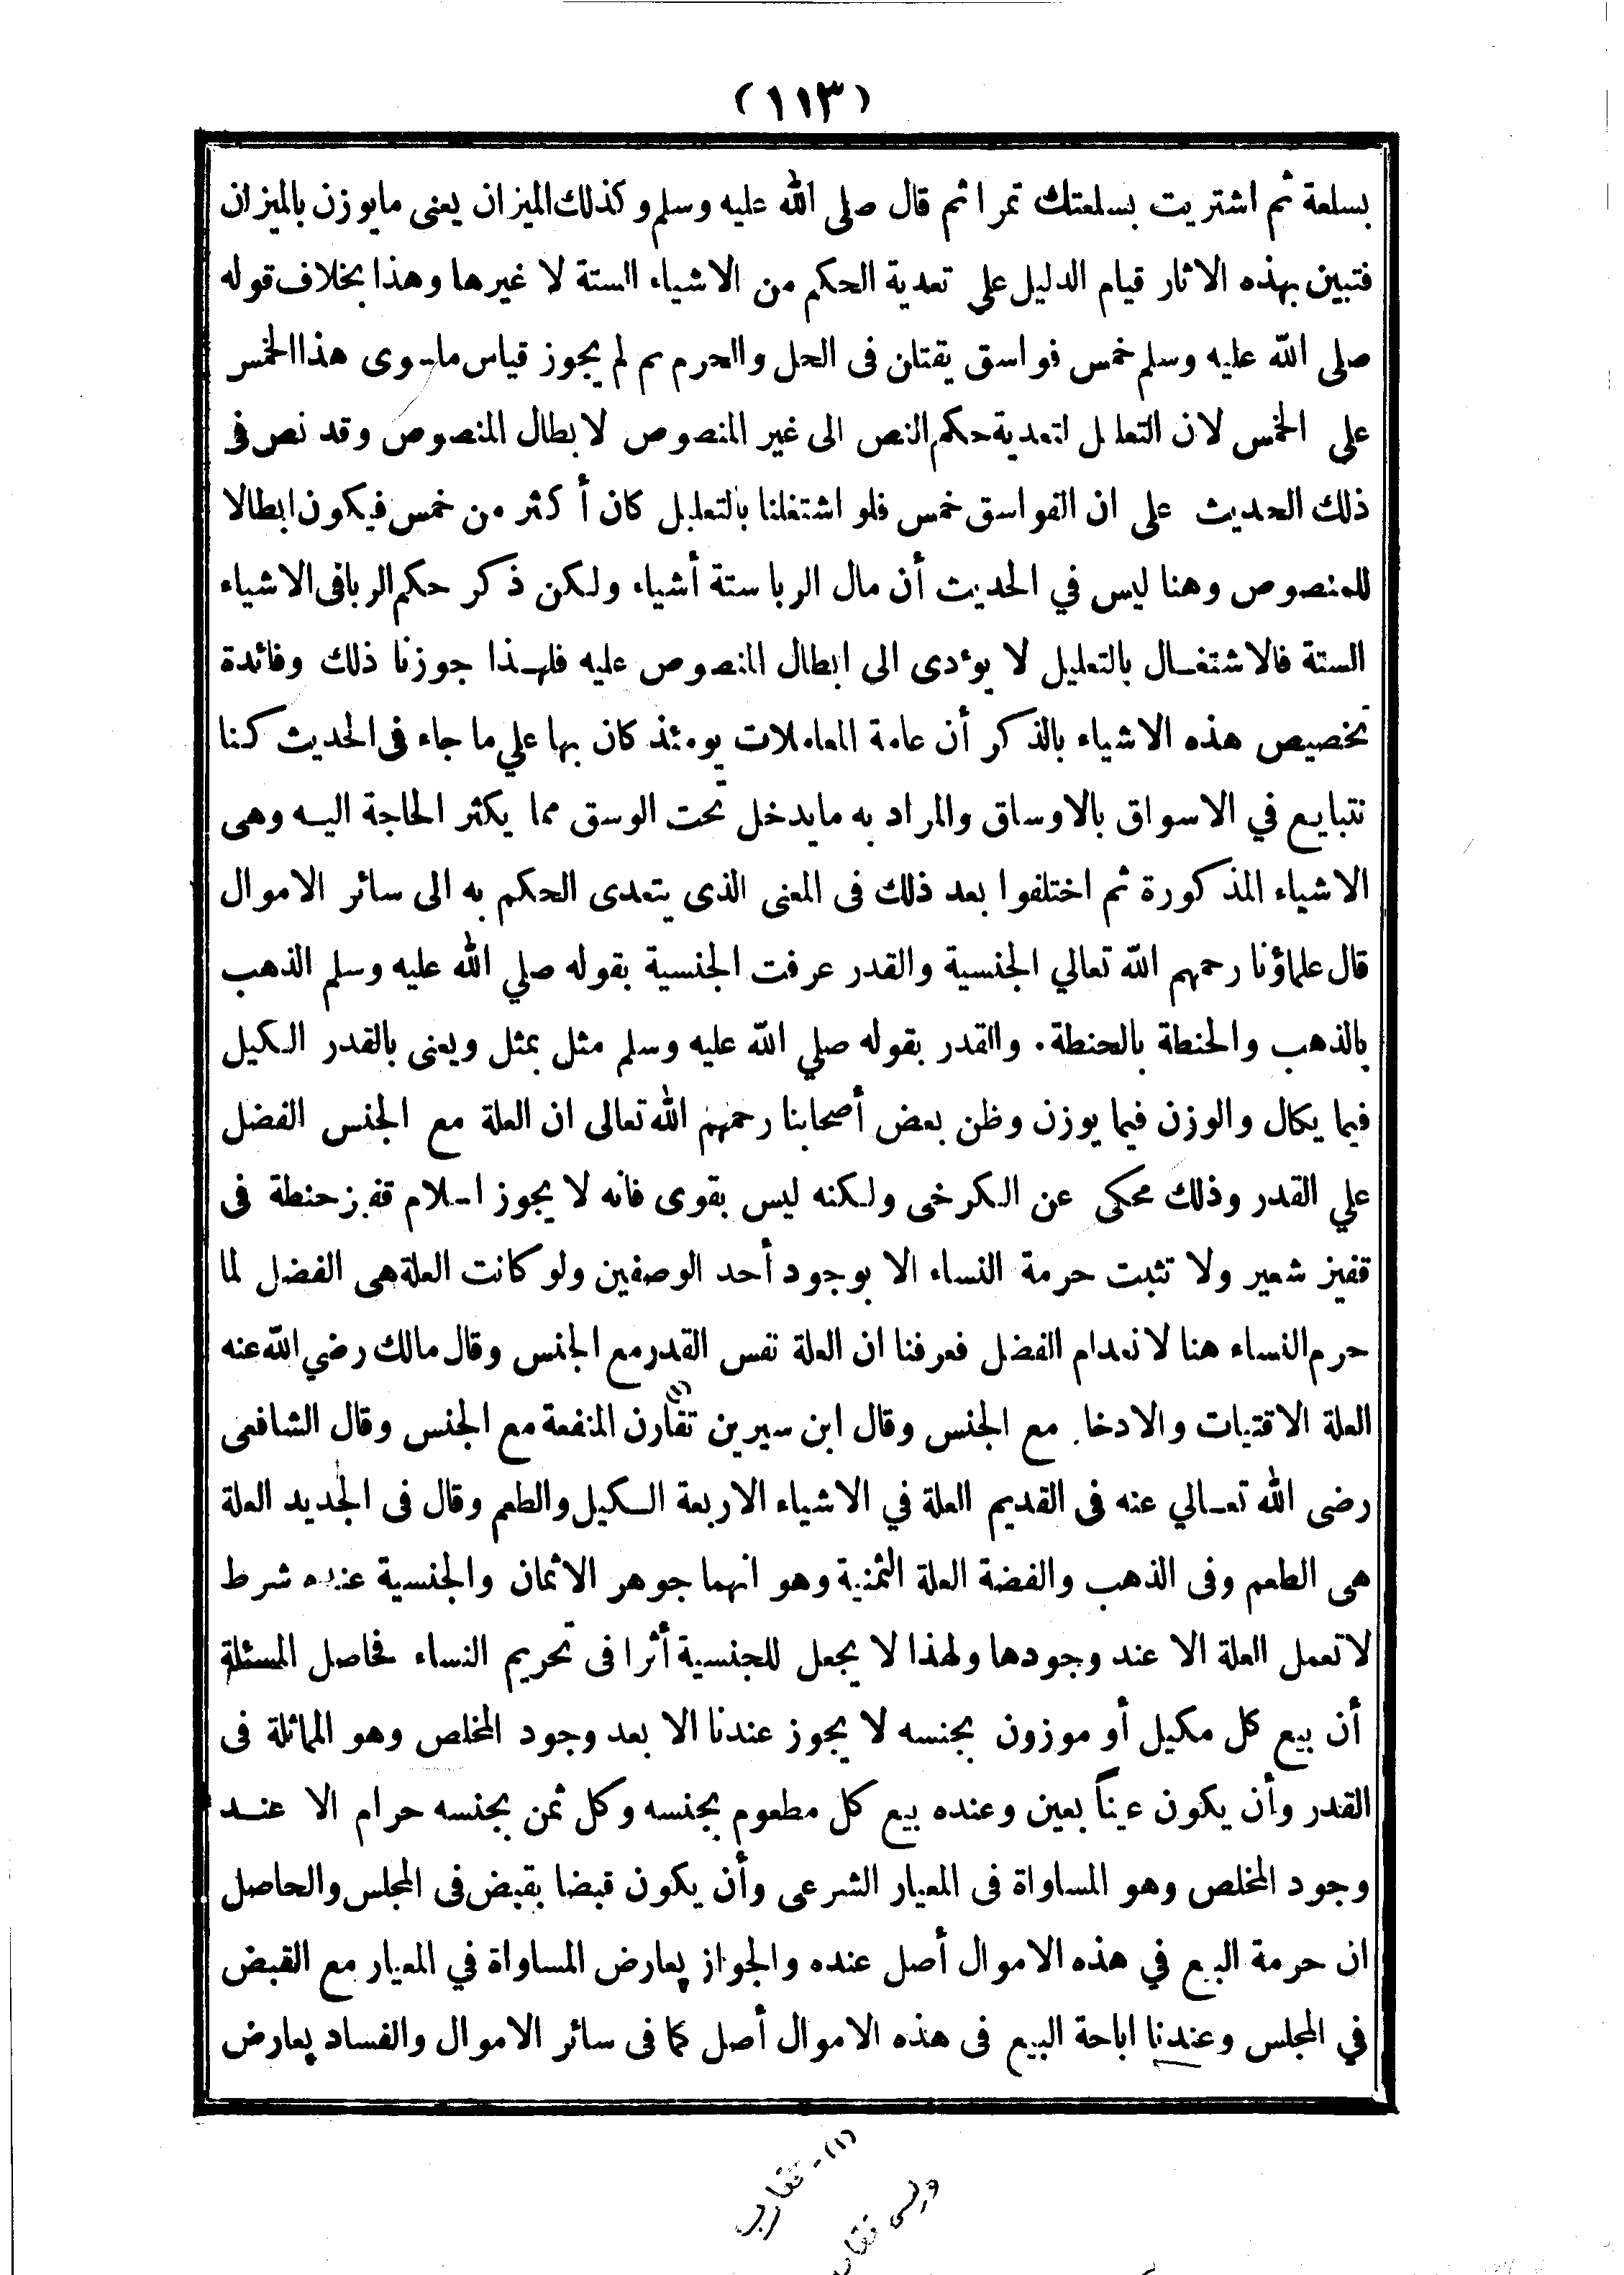 (١١٣)
بسلعة ثم اشتريت بسلعتك تمرا ثم قال صلى الله عليه وسلم وكذلك الميزان يعنى مايوزن بالميزان
فتبين بهذه الاثار قيام الدليل على تعدية الحكم من الاشياء الستة لا غيرها وهذا بخلاف قوله
صلى الله عليه وسلم خمس فواسق يقتلن فى الحل والحرم م لم يجوز قياس ماسوى هذا الخمس
على الخمس لان التعليل لتعدية حكم النص الى غير المنصوص لا بطال المنصوص وقد نص فى
ذلك الحديث على ان الفواسق خمس فلو اشتغلنا بالتعليل كان أكثر من خمس فيكون ابطالا
للمنصوص وهنا ليس في الحديث أن مال الربا ستة أشياء ولكن ذكر حكم الربا فى الاشياء
الستة فالاشتغال بالتعليل لا يؤدى الى ابطال المنصوص عليه فلهذا جوزنا ذلك وفائدة
تخصيص هذه الاشياء بالذكر أن عامة المعاملات يومئذ كان بها علي ما جاء فى الحديث كنا
نتبايع في الاسواق بالاوساق والمراد به مايدخل تحت الوسق مما يكثر الحاجة اليه وهى
الاشياء المذكورة ثم اختلفوا بعد ذلك فى المعنى الذى يتعدى الحكم به الى سائر الاموال
قال علماؤنا رحمهم الله تعالي الجنسية والقدر عرفت الجنسية بقوله صلي الله عليه وسلم الذهب
بالذهب والحنطة بالحنطة. والقدر بقوله صلي الله عليه وسلم مثل بمثل ويعنى بالقدر الكيل
فيما يكال والوزن فيما يوزن وظن بعض أصحابنا رحمهم الله تعالى ان العلة مع الجنس الفضل
علي القدر وذلك محكى عن الكرخى ولكنه ليس بقوى فانه لا يجوز اسلام قفيز حنطة فى
قفيز شعير ولا تثبت حرمة النساء الا بوجود أحد الوصفين ولو كانت العلة هى الفضل لما
حرم النساء هنا لانعدام الفضل فعرفنا ان العلة نفس القدر مع الجنس وقال مالك رضي الله عنه
العلة الاقتيات والادخار مع الجنس وقال ابن سيرين تقارن (١) المنفعة مع الجنس وقال الشافعى
رضى الله تعالي عنه فى القديم العلة في الاشياء الاربعة الكيل والطعم وقال فى الجديد العلة
هى الطعم وفى الذهب والفضة العلة الثمنية وهو انهما جوهر الاثمان والجنسية عنده شرط
لا تعمل العلة الا عند وجودها ولهذا لا يجعل للجنسية أثرا فى تحريم النساء فحاصل المسئلة
أن بيع كل مكيل أو موزون بجنسه لا يجوز عندنا الا بعد وجود المخلص وهو المماثلة فى
القدر وأن يكون عيناً بعين وعنده بيع كل مطعوم بجنسه وكل ثمن بجنسه حرام الا عند
وجود المخلص وهو المساواة فى المعيار الشرعى وأن يكون قبضا بقبض فى المجلس والحاصل
ان حرمة البيع في هذه الاموال أصل عنده والجواز يعارض المساواة في المعيار مع القبض
في المجلس وعندنا اباحة البيع فى هذه الاموال أصل كما فى سائر الاموال والفساد يعارض
(١) - تقارب